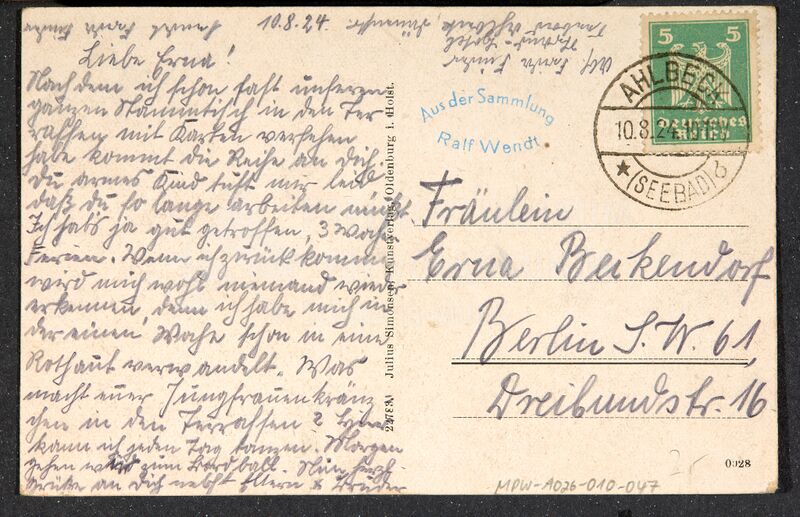 10.8.24.
Liebe Erna!
Nachdem ich schon fast unseren
ganzen Stammtisch in den Ter-
rassen mit Karten versehen
habe kommt die Reihe an Dich.
Du armes Kind tust mir leid
daß Du so lange arbeiten mußt.
Ich habs ja gut getroffen, 3 Woch
Ferien. Wenn ich zurück komme
wird mich wohl niemand wieder
erkennen, denn ich habe mich in
der einen Woche schon in eine
Rothaut verwandelt. Was
macht euer Jungfrauenkränz-
chen in den Terrassen? Hier
kann ich jeden Tag tanzen. Morgen
gehen wir zum Bordball. Nun herzl.
Grüße an Dich nebst Eltern & Brüder
22783A Julius Simonsen, Kunstverlag, Oldenburg i. Holst.
Strand-Hotel
Aus der Sammlung
Ralf Wendt
5 5
Deutsches
Reich
AHLBECK
10.8.24
(SEEBAD) b
Fräulein
Erna Beckendorf
Berlin S.W. 61,
Dreibundstr. 16
0028
MPW-A026-010-047